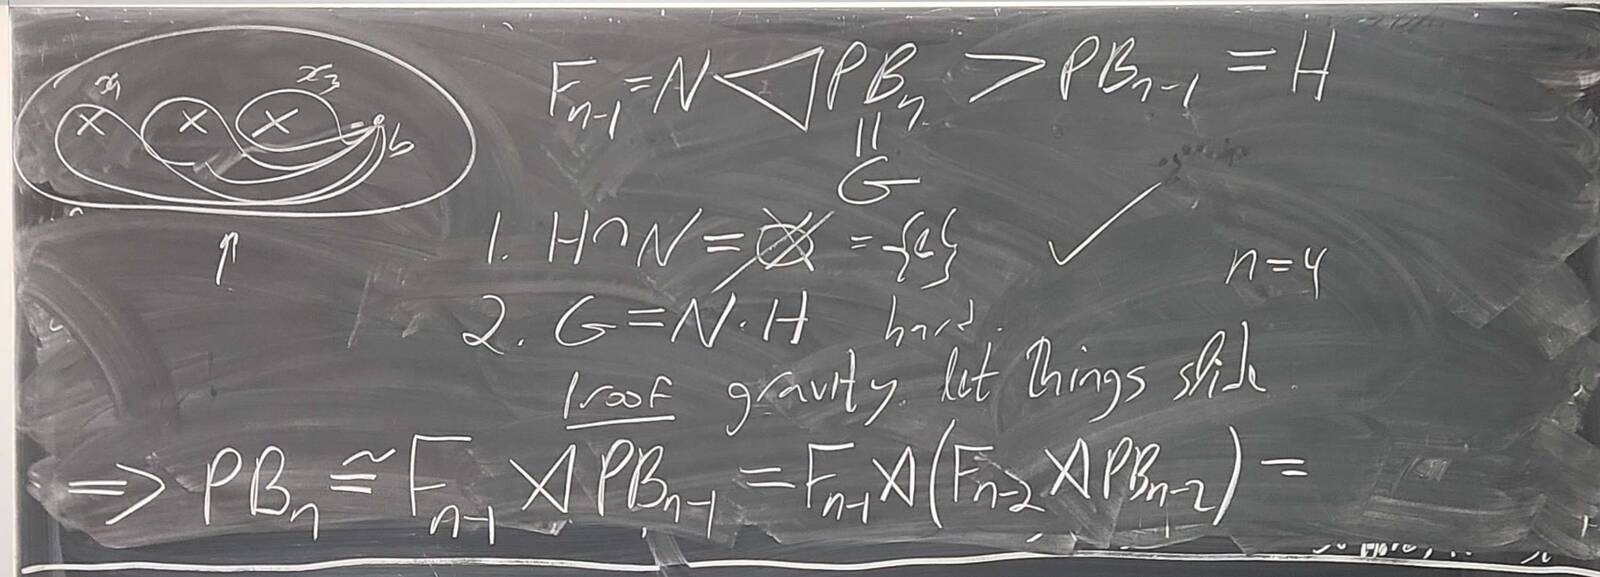 x₁ x₃ b
F_{n-1} = N ◁ PB_n > PB_{n-1} = H
||
G
1. H ∩ N = ∅ = {e} ✓
n=4
2. G = N · H hard.
proof gravity. let things slide.
⇒ PB_n ≅ F_{n-1} ⋊ PB_{n-1} = F_{n-1} ⋊ (F_{n-2} ⋊ PB_{n-2}) =